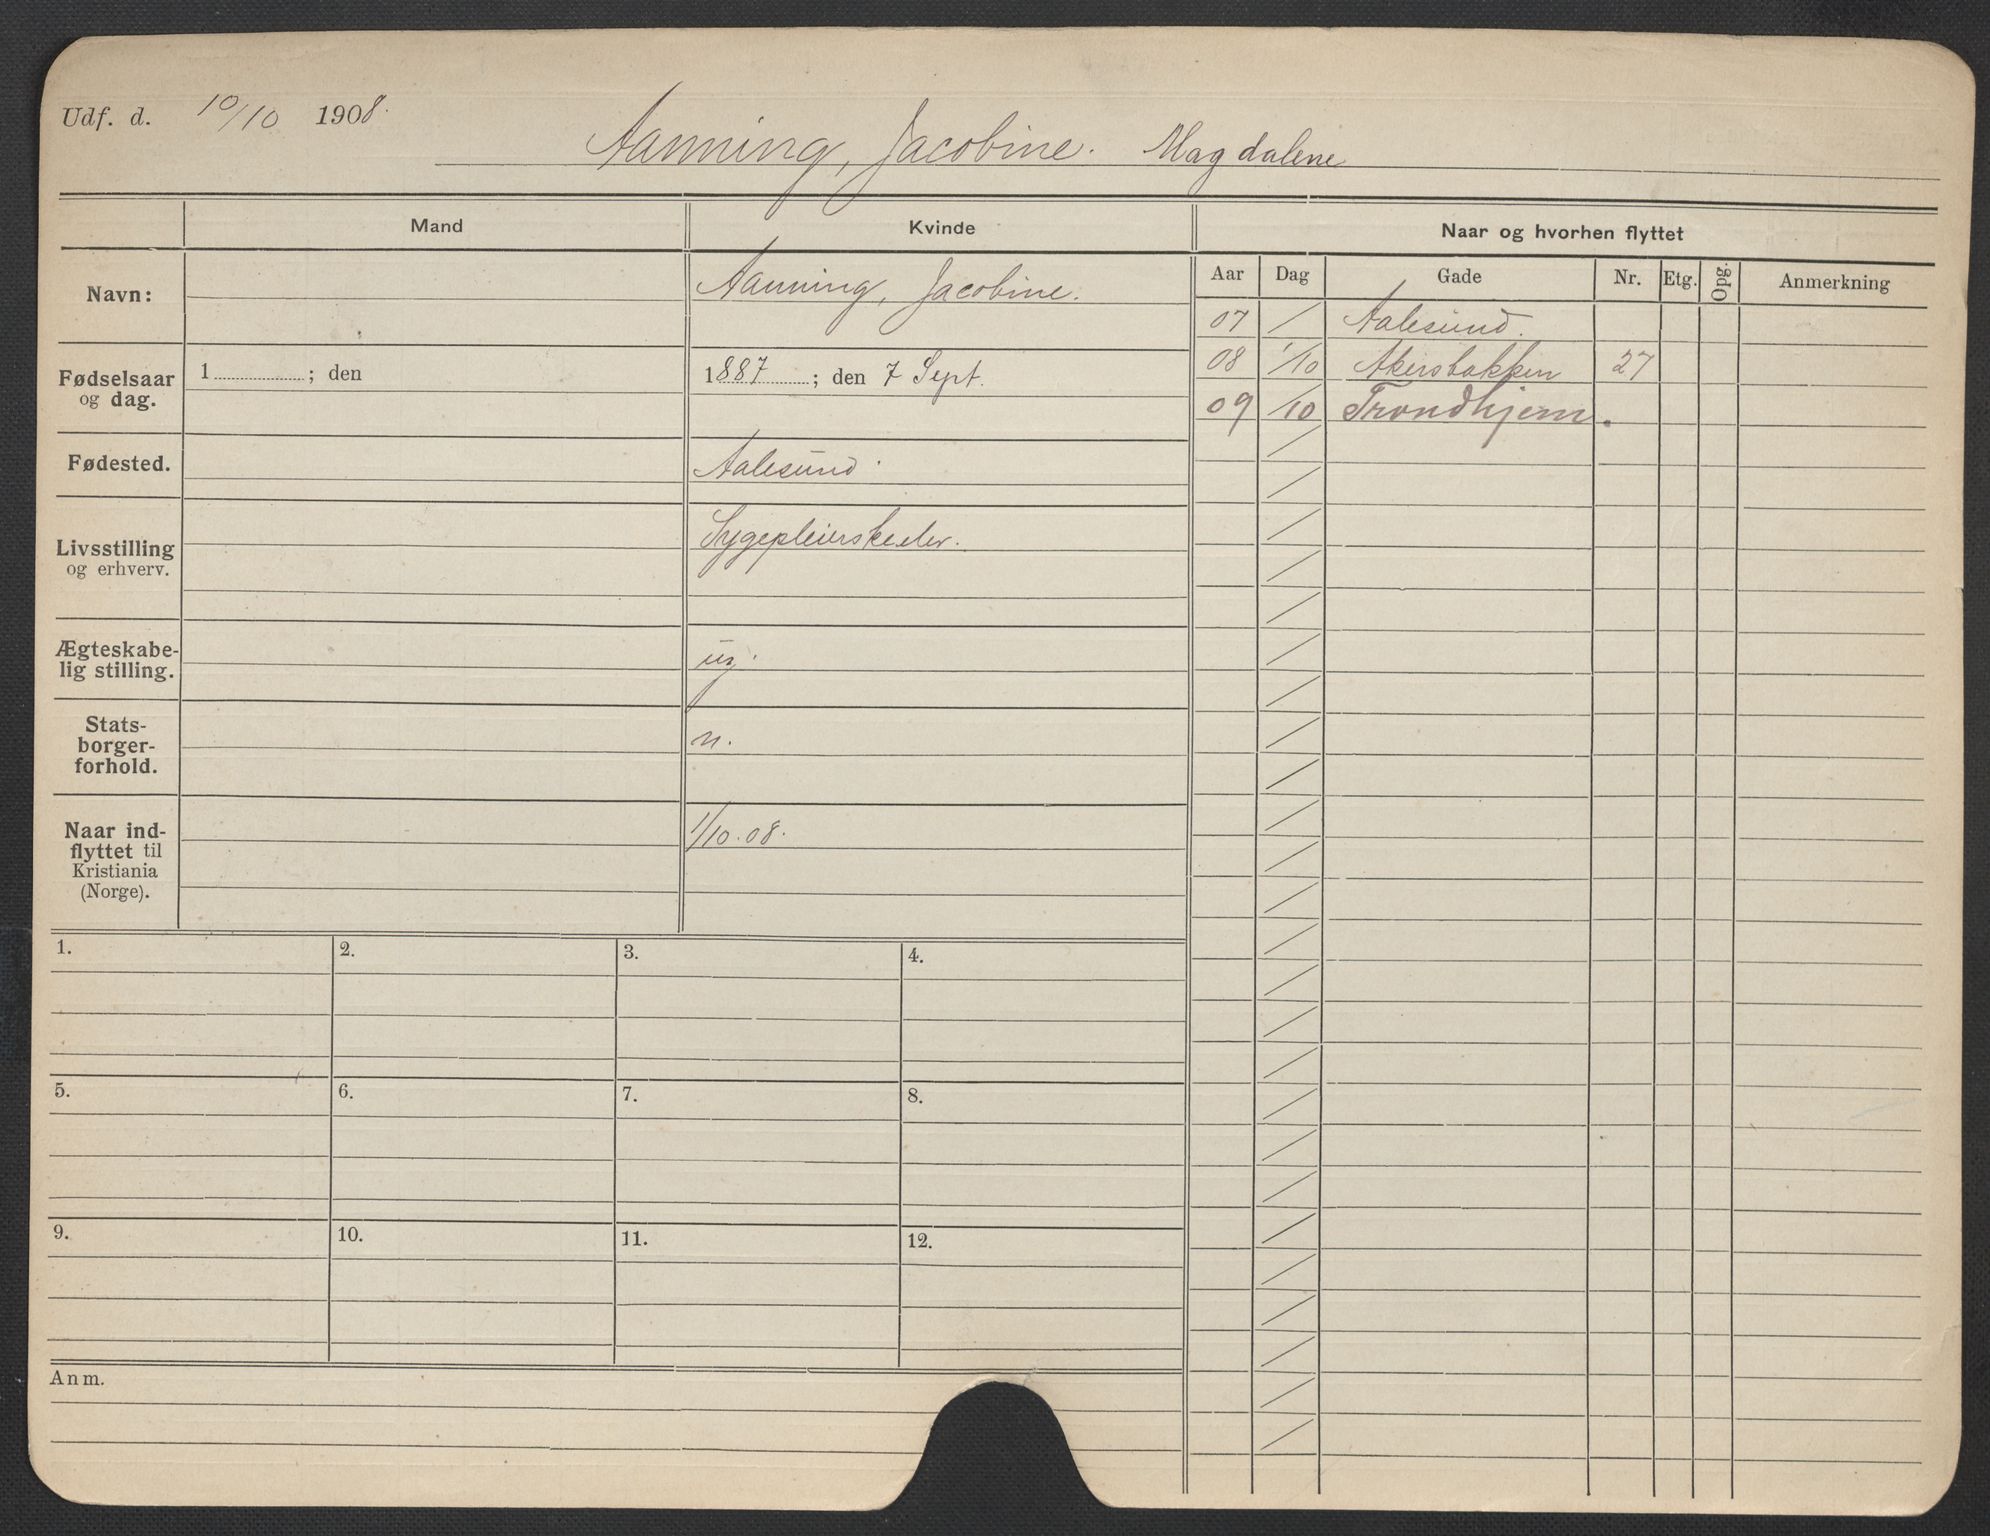 Udf. d. 10/10 1908.
Aanning, Jacobine. Magdalene
Mand
Kvinde
Naar og hvorhen flyttet
Navn:
Aanning, Jacobine.
Aar Dag Gade Nr. Etg. Opg. Anmerkning
07 / Aalesund.
08 1/10 Akersbakken 27
09 /10 Trondhjem.
Fødselsaar
og dag.
1 ; den
1887 ; den 7 Sept.
Fødested.
Aalesund.
Livsstilling
og erhverv.
Sygepleierskeelev.
Ægteskabe-
lig stilling.
ug.
Stats-
borger-
forhold.
n.
Naar ind-
flyttet til
Kristiania
(Norge).
1/10.08.
1. 2. 3. 4.
5. 6. 7. 8.
9. 10. 11. 12.
Anm.